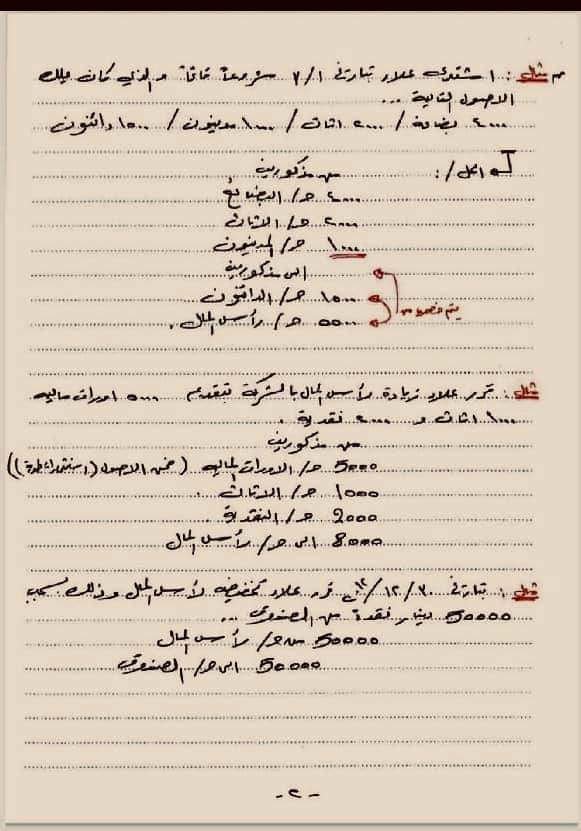 مثال : اشترى علاء بتاريخ ٧/١ مشروعاً قائماً و الذي كان يملك
الاصول التالية ...
٤٠٠٠ بضاعة / ٢٠٠٠ اثاث / ١٠٠٠ مدينون / ١٥٠٠ دائنون
الحل /:
من مذكورين
٤٠٠٠ حـ/ البضائع
٢٠٠٠ حـ/ الاثاث
١٠٠٠ حـ/ المدينون
الى مذكورين
١٥٠٠ حـ/ الدائنون
٥٥٠٠ حـ/ رأس المال .
يتم
مثال : قرر علاء زيادة رأس المال بالشركة بتقديم ٥٠٠٠ اوراق ماليه
١٠٠٠ اثاث و ٢٠٠٠ نقدية .
من مذكورين
5000 حـ/ الاوراق الماليه ( ضمن الاصول (استثمارات
1000 حـ/ الاثاث .
2000 حـ/ النقدية .
8000 الى حـ/ رأس المال
مثال : بتاريخ ١٢/٣٠ قرر علاء تخفيض رأس المال وذلك بسحب
50000 دينار نقدة من الصندوق ...
50000 من حـ/ رأس المال
50000 الى حـ/ الصندوق
- ٢ -